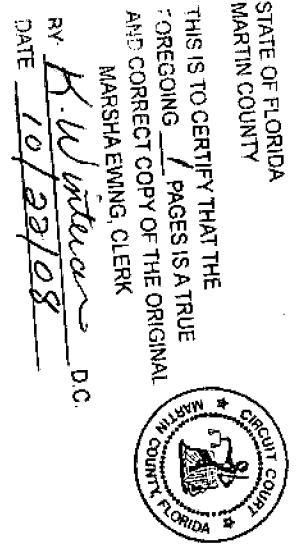 STATE OF FLORIDA
MARTIN COUNTY
THIS IS TO CERTIFY THAT THE
FOREGOING 1 PAGES IS A TRUE
AND CORRECT COPY OF THE ORIGINAL
MARSHA EWING, CLERK
BY K. D.C.
DATE 10/22/08
CIRCUIT COURT
MARTIN COUNTY, FLORIDA